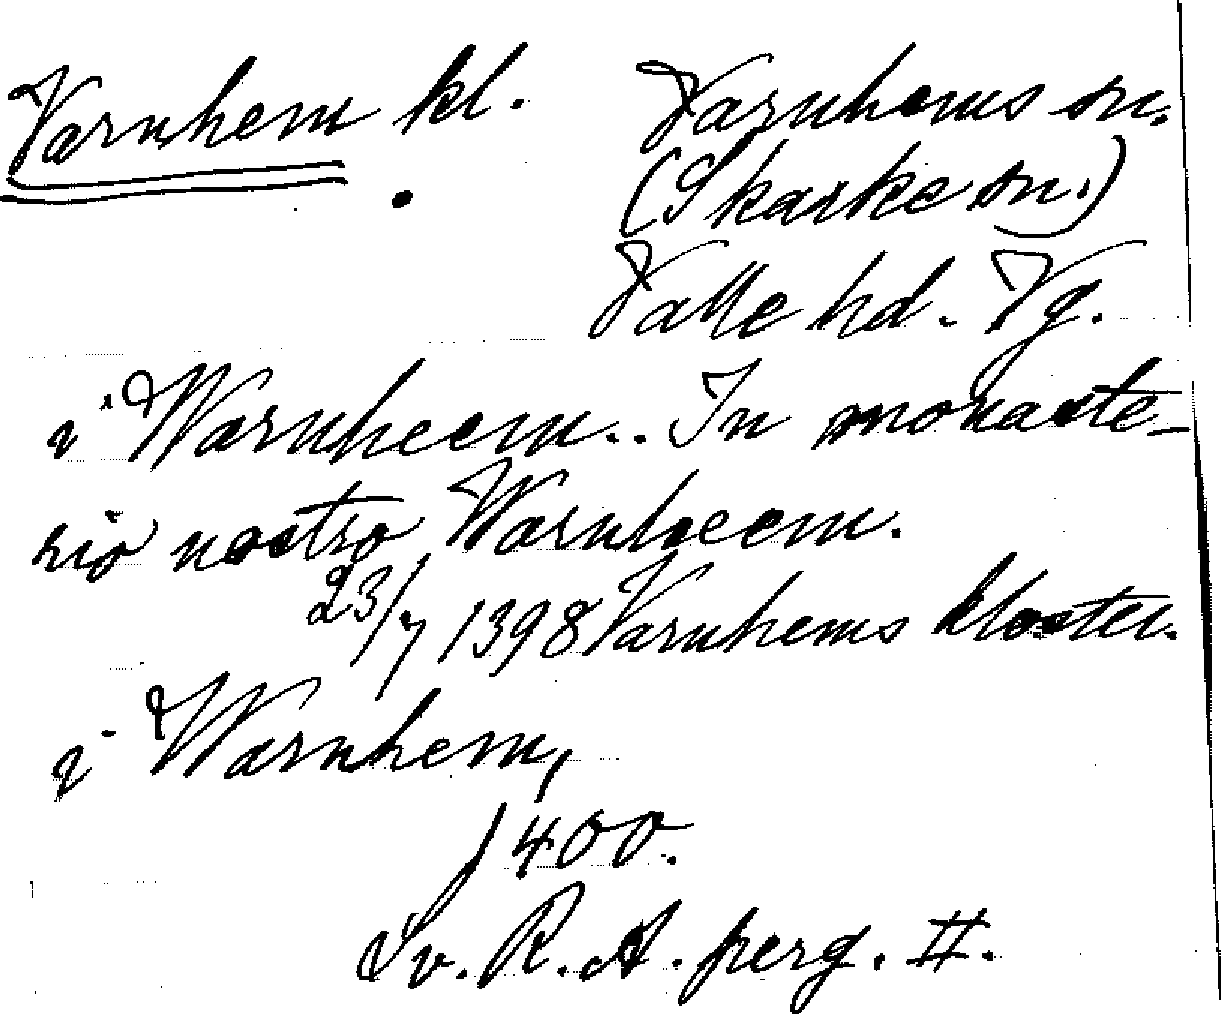 Varnhem kl. Varnhems sn.
(Skarke sn.)
Valle hd. Vg.
i Warnheem.. In monaste-
rio nostro Warnheem.
23/7 1398 Varnhems kloster.
i Warnhem,
1400.
Sv. R. A. perg. II.